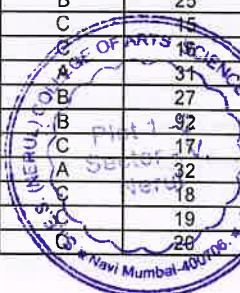 B 25
C 15
C 16
A 31
B 27
B 92
C 17
A 32
C 18
C 19
C 20
(NERUL) COLLEGE OF ARTS, SCIENCE
Plot 1
Sector
Nerul
S.I.E.S.
* Navi Mumbai-400706. *